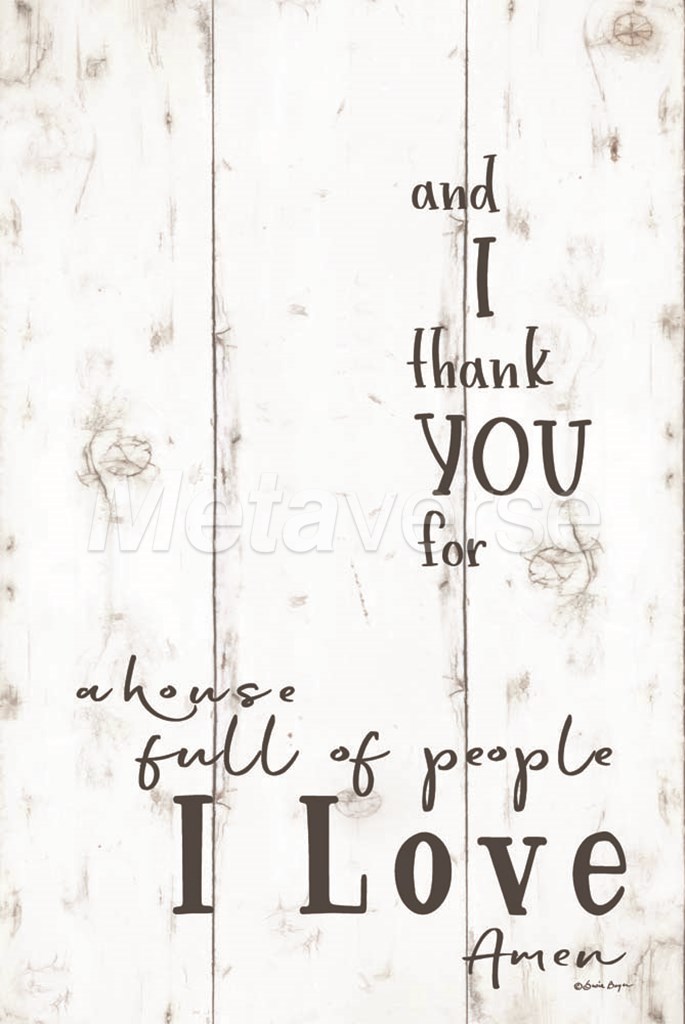 and
I
thank
YOU
for
Metaverse
a house
full of people
I Love
Amen